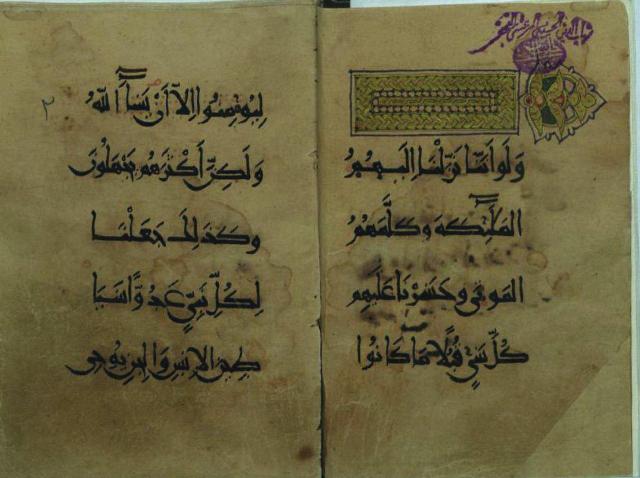 وَلَوْ أَنَّنَا نَزَّلْنَا إِلَيْهِمُ
الْمَلٰٓئِكَةَ وَكَلَّمَهُمُ
الْمَوْتٰى وَحَشَرْنَا عَلَيْهِمْ
كُلَّ شَيْءٍ قُبُلًا مَّا كَانُوا
لِيُؤْمِنُوا إِلَّآ أَنْ يَشَآءَ اللّٰهُ
٢
وَلٰكِنَّ أَكْثَرَهُمْ يَجْهَلُونَ
وَكَذٰلِكَ جَعَلْنَا
لِكُلِّ نَبِيٍّ عَدُوًّا شَيَا
طِينَ الْإِنْسِ وَالْجِنِّ يُوحِي